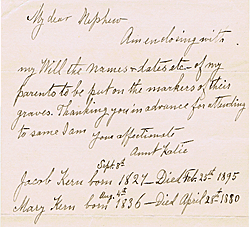 My dear Nephew
Am enclosing with
my Will the names & dates etc of my
parents to be put on the markers of their
graves. Thanking you in advance for attending
to same I am
your affectionate
Aunt Katie
Sept 9th
Jacob Kern born 1827 — Died Feb 25th 1895
Aug. 4th
Mary Kern born 1836 — Died April 25th 1880